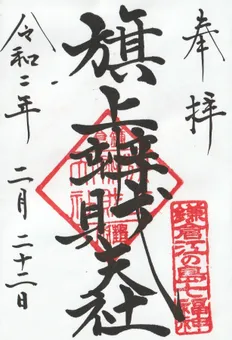 奉拝
旗上弁財天社
鎌倉江の島七福神
令和二年 二月 二十二日